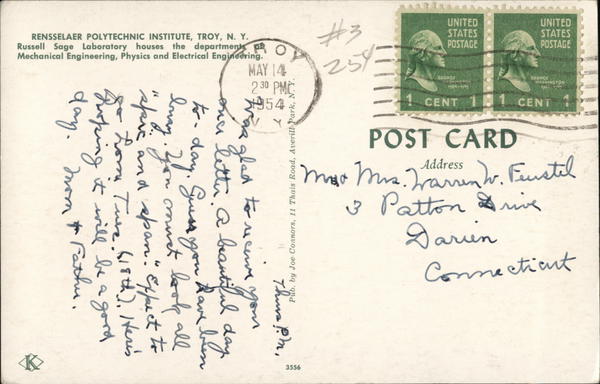 RENSSELAER POLYTECHNIC INSTITUTE, TROY, N. Y.
Russell Sage Laboratory houses the departments of
Mechanical Engineering, Physics and Electrical Engineering.
TROY
MAY 14
2 30 PM
1954
N. Y.
#3
25¢
UNITED STATES POSTAGE
1 CENT 1
UNITED STATES POSTAGE
1 CENT 1
POST CARD
Address
Mr & Mrs. Warren W. Feustel
3 Patton Drive
Darien
Connecticut
Thurs. P.M.
Was glad to receive your
one letter. A beautiful day
to-day. Guess you have been
busy. You must look all
"spic and span." Expect to
go down Tues. (18th). Here's
hoping it will be a good
day. Mom & Father.
Pub. by Joe Connors, 11 Thais Road, Averill Park, N. Y.
K
3556